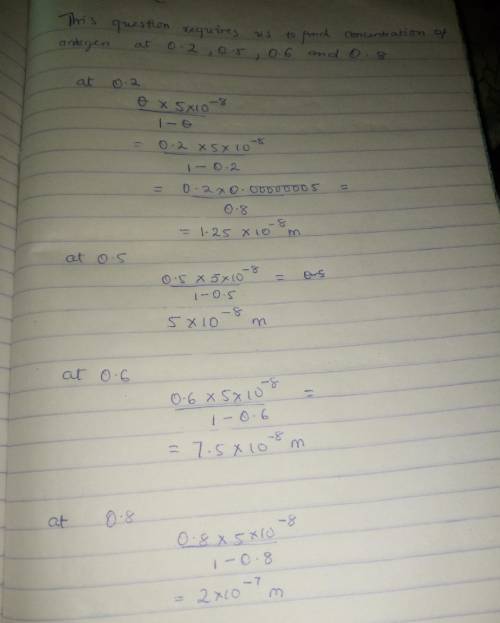 This question requires us to find concentration of
antigen at 0.2, 0.5, 0.6 and 0.8
at 0.2
θ × 5×10⁻⁸
1-θ
= 0.2 × 5×10⁻⁸
1-0.2
= 0.2×0.00000005 =
0.8
= 1.25 ×10⁻⁸ m
at 0.5
0.5 × 5×10⁻⁸ = 0.5
1-0.5
5×10⁻⁸ m
at 0.6
0.6 × 5×10⁻⁸ =
1-0.6
= 7.5×10⁻⁸ m
at 0.8
0.8 × 5×10⁻⁸
1-0.8
= 2×10⁻⁷ m